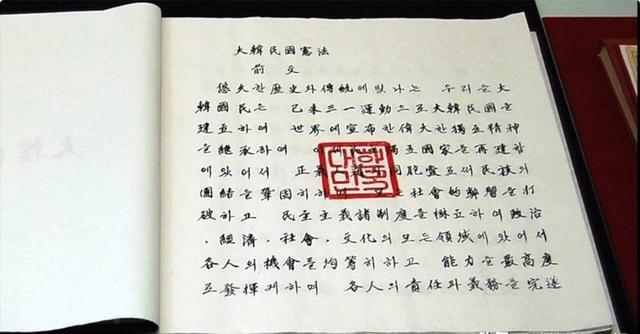 大韓民國憲法
前文
悠久한 歷史와 傳統에 빛나는 우리들 大
韓國民은 己未三一運動으로 大韓民國을
建立하여 世界에 宣布한 偉大한 獨立精神
을 繼承하여 獨立國家를 再建함
에 있어서 正義 同胞愛로써 民族의
團結을 鞏固히하며 모든 社會的弊習을 打
破하고 民主主義諸制度를 樹立하여 政治
、經濟、社會、文化의 모든 領域에 있어서
各人의 機會를 均等히하고 能力을 最高度
로 發揮케하며 各人의 責任과 義務를 完遂
대한민국